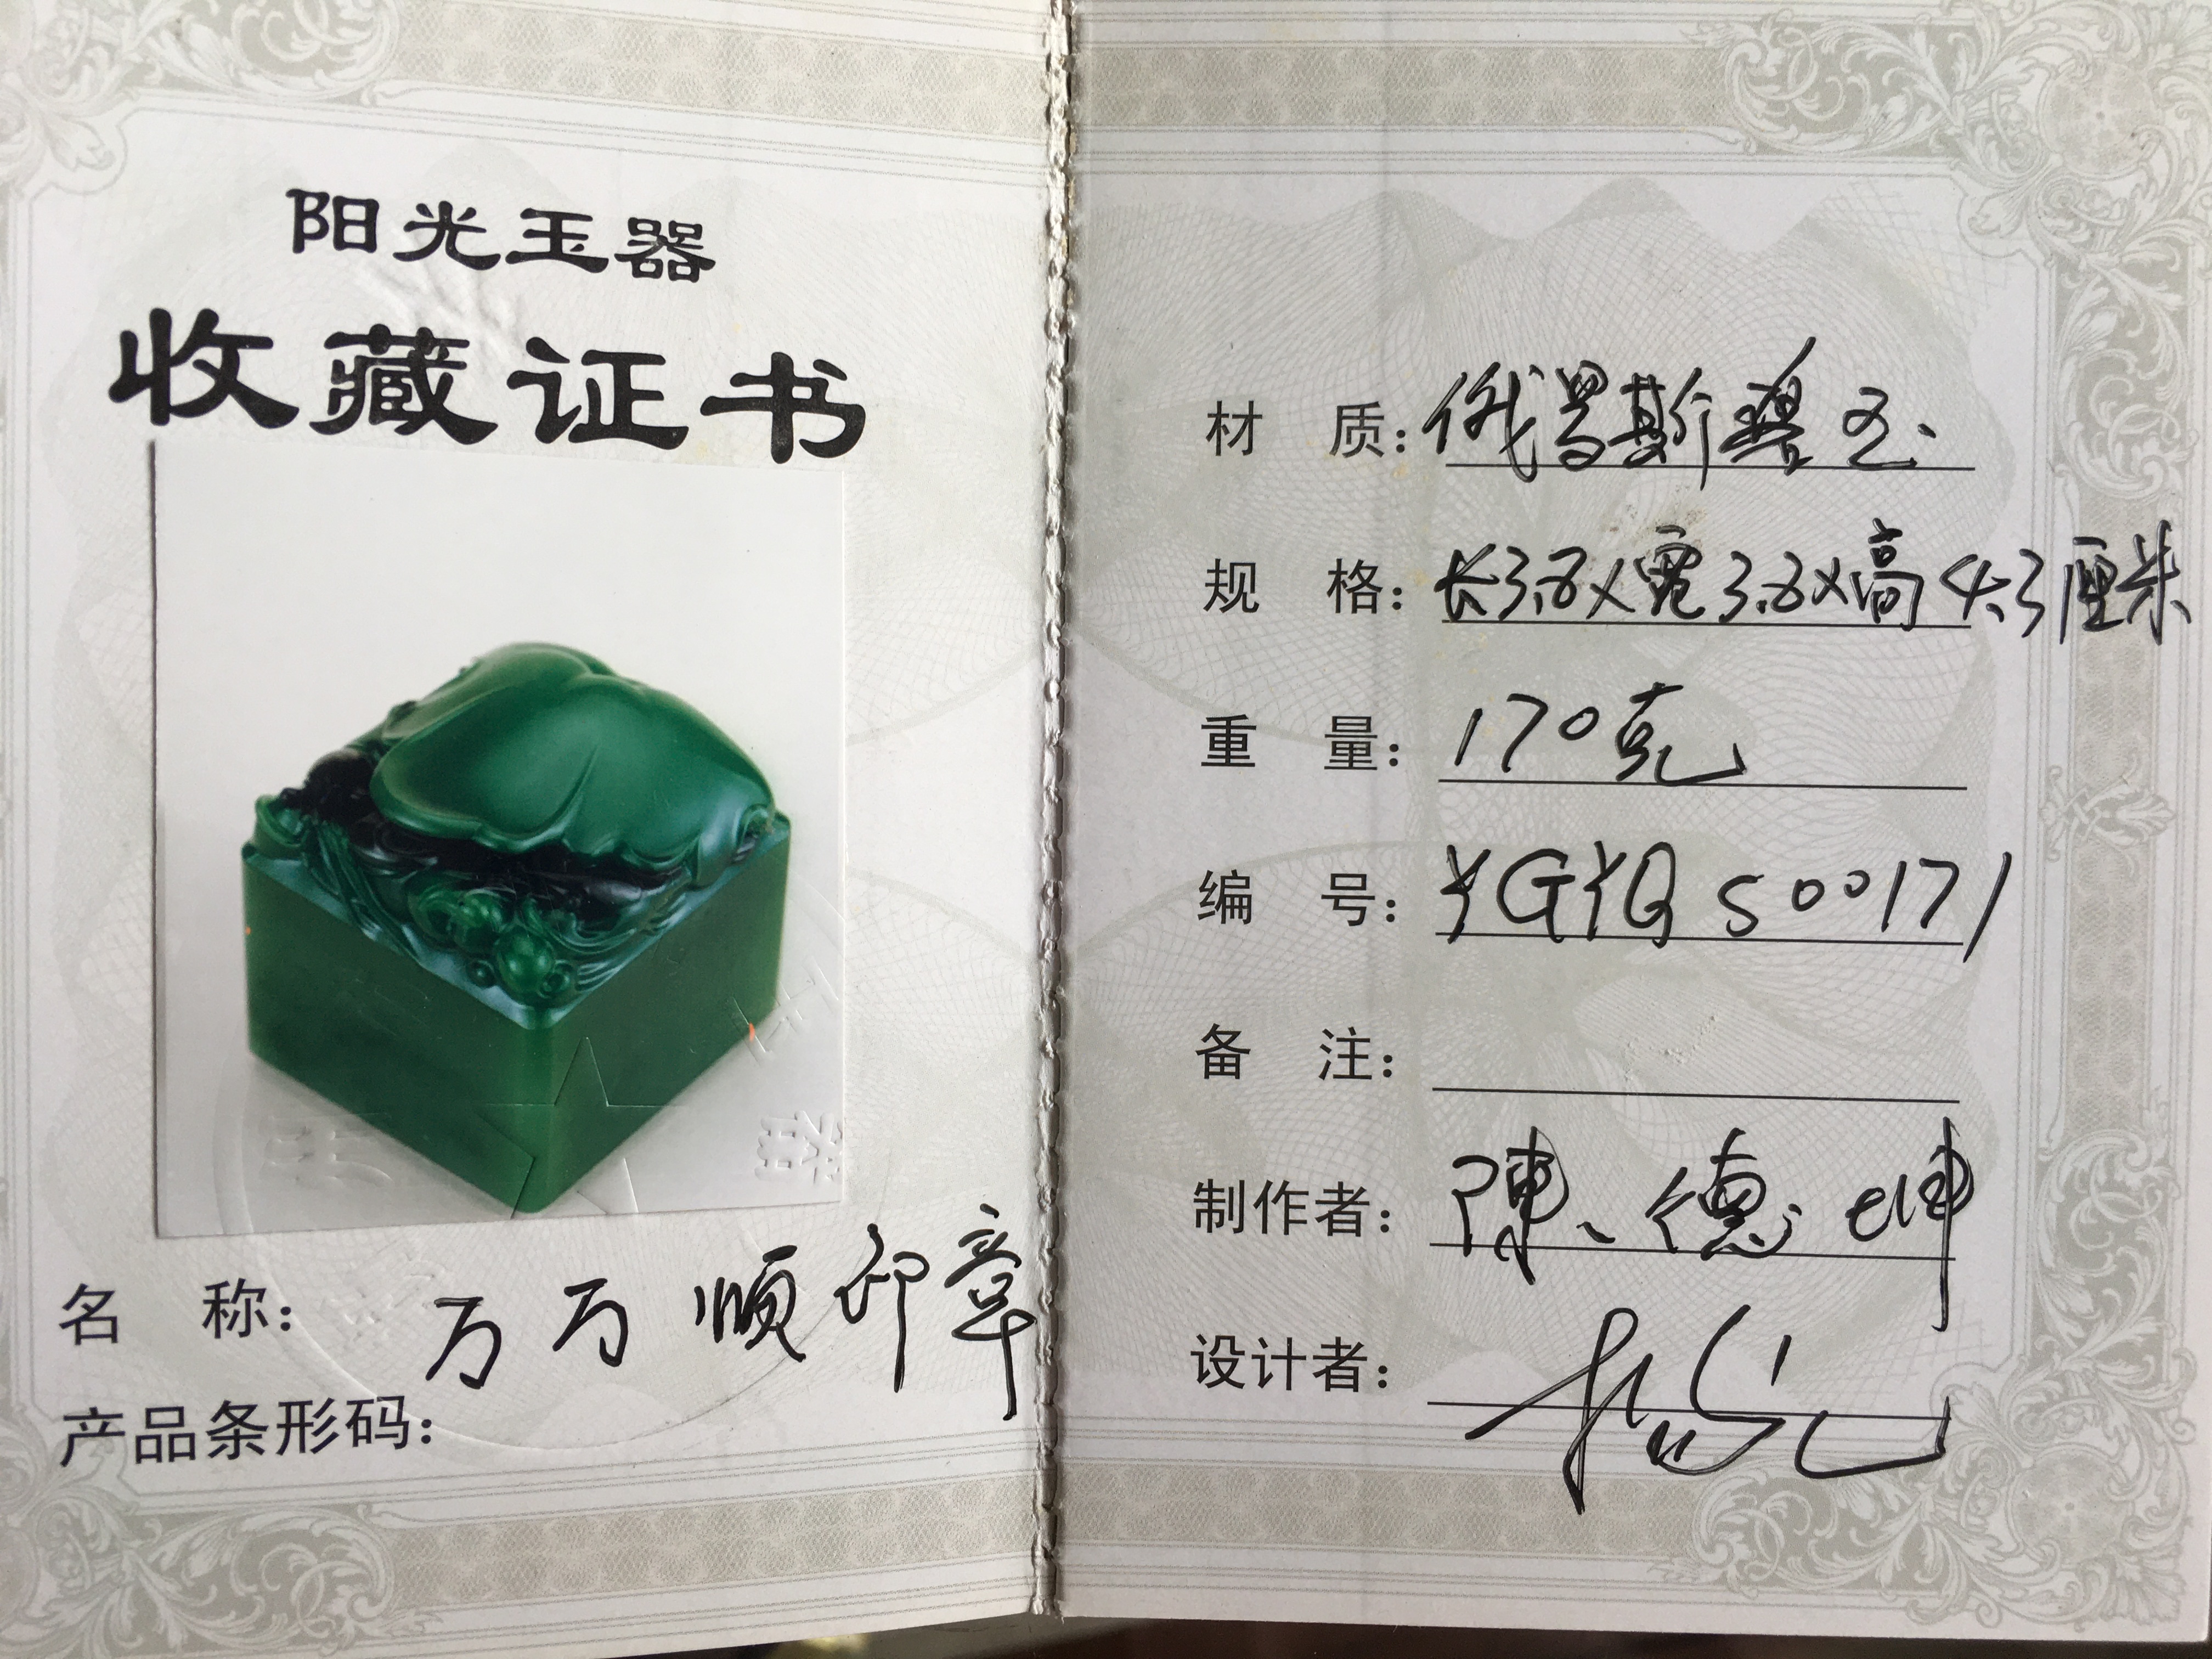 阳光玉器
收藏证书
名 称: 万万顺印章
产品条形码:
材 质: 俄罗斯碧玉
规 格: 长3.8×宽3.8×高4.3厘米
重 量: 170克
编 号: YGYQ S00171
备 注:
制作者: 陳德坤
设计者: